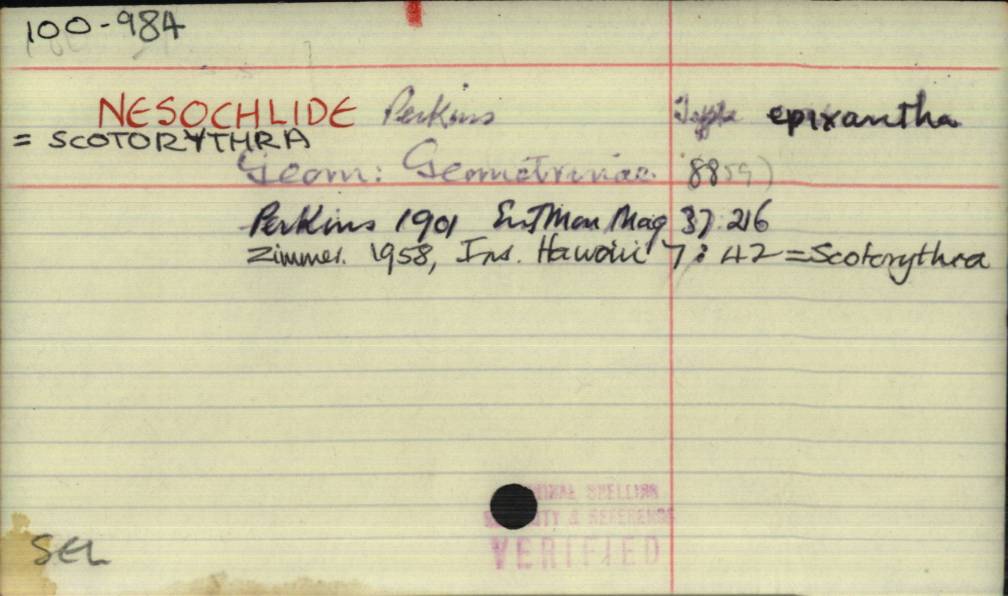 100-984
NESOCHLIDE Perkins Type epixantha
= SCOTORYTHRA
Geom: Geometrinae. 8859)
Perkins 1901 Ent Mon Mag 37:216
Zimmer. 1958, Ins. Hawaii 7: 42 = Scotorythra
SPELLING
& REFERENCE
VERIFIED